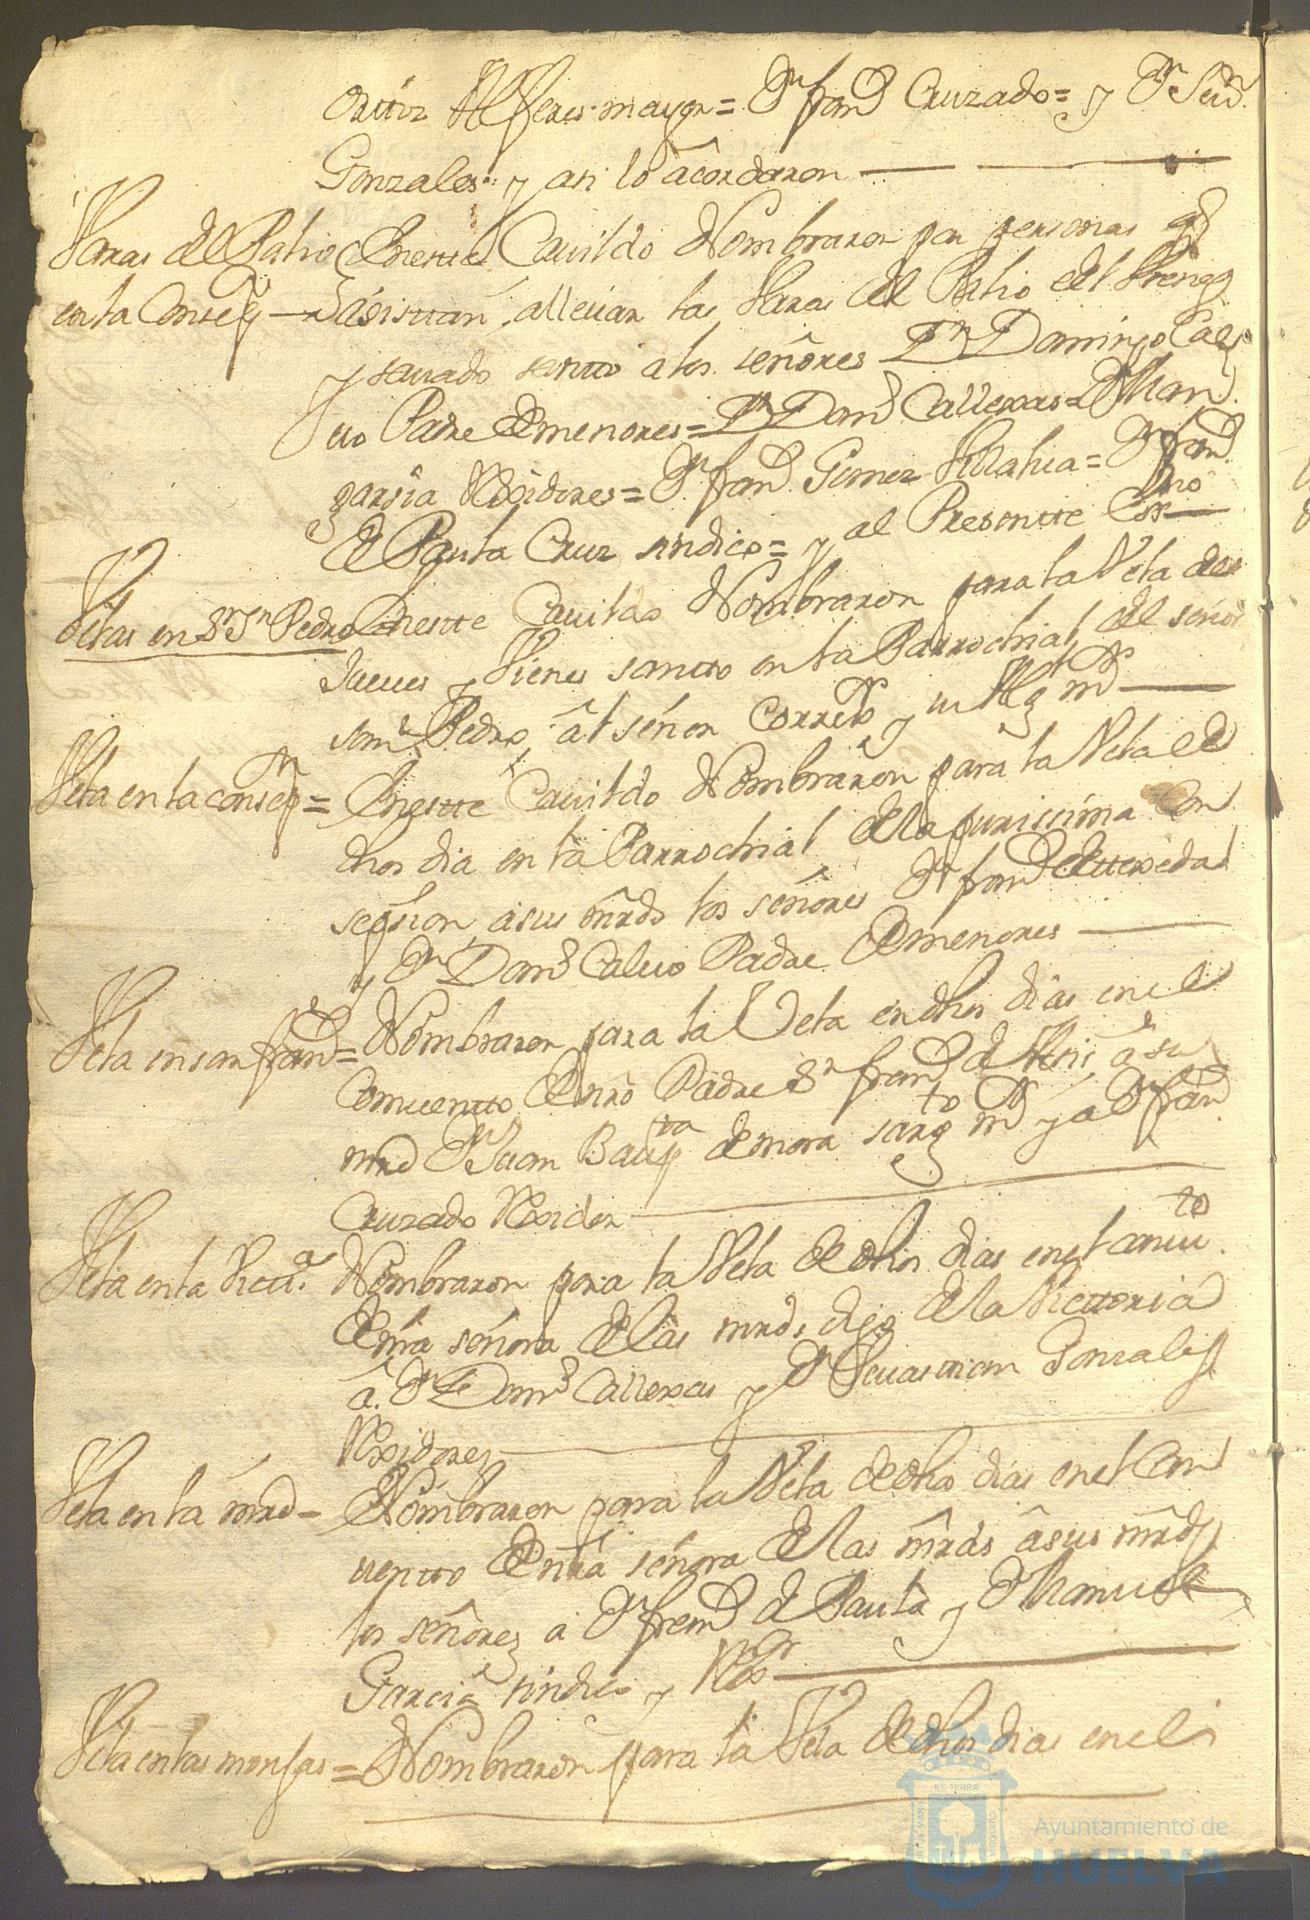 Orttiz Alferes mayor = Dn franco Cruzado = y Dn Seuan
Gonzales y asi lo acordaron
Varas del Palio
en la Consepn
Eneste Cauildo Nombraron por personas q
asisttan allevar las Varas del Palio del Viernes
y sauado santto a los señores Dn Domingo Cal
uo Padre de menores = Dn Domo Callexas = Dn Man
garsia Rexidores = Dn franco Gomez = Dn franco
de Paula Cruz sindico = y al Presentte Essno
Velas en Sr Sn Pedro
Eneste Cauildo Nombraron para la Vela del
Jueues y Viernes santto en la Parrochial del señor
san Pedro, al señor Correxor y su Algl mor
Vela en la consepn =
Eneste Cauildo Nombraron para la Vela de
dhos dia en la Parrochial de la purissima Con
sepsion a sus mrds los señores Dn franco de texeda
y Dn Domo Caluo Padre de menores
Vela en san franco =
Nombraron para la Vela en dhos dias en el
Comuentto de nro Padre Sn franco de Asis, a su
mrd Dn Juan Baupta de mora sargto mor y a Dn franco
Cruzado Rexidor
Vela en la Victa
Nombraron para la Vela de dhos dias en el Conuto
de nra señora de las mrds, digo de la Victtoria
a Dn Domo Callexas y Dn Seuasttian Gonzales
Rexidores
Vela en la mrd
Nombraron para la Vela de dhos dias en el Con
uentto de nra señora de las mrds a sus mrds
los señores a Dn franco de Paula y Dn Manuel
Garcia sindico y Rexor
Vela en las monjas =
Nombraron para la Vela de dhos dias en el
Ayuntamiento de
HUELVA